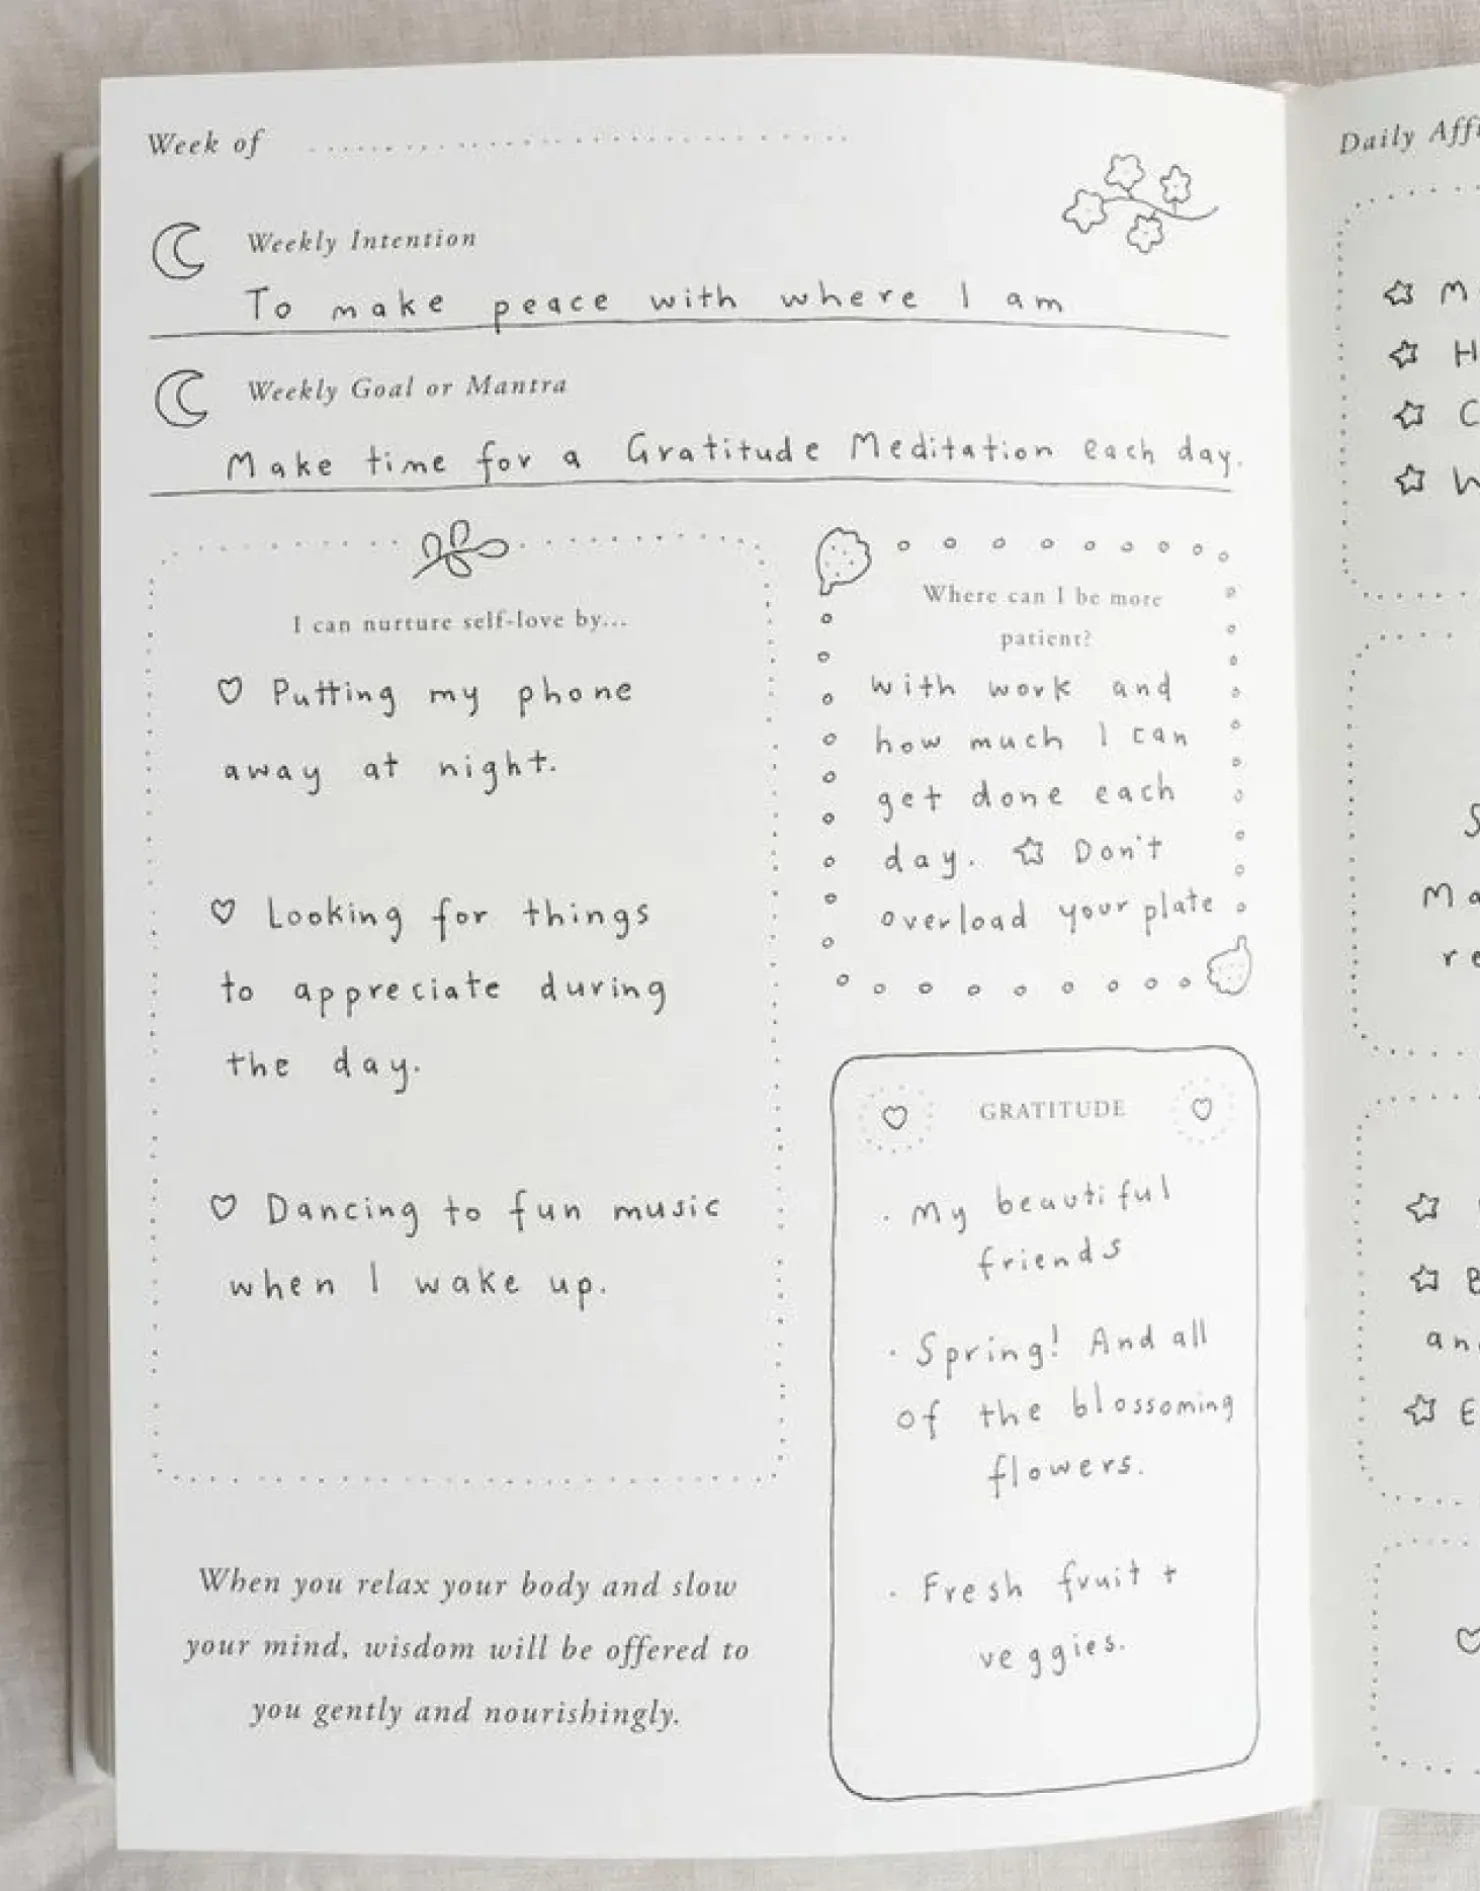 Week of
Weekly Intention
To make peace with where I am
Weekly Goal or Mantra
Make time for a Gratitude Meditation each day.
I can nurture self-love by...
♡ Putting my phone
away at night.
♡ Looking for things
to appreciate during
the day.
♡ Dancing to fun music
when I wake up.
When you relax your body and slow
your mind, wisdom will be offered to
you gently and nourishingly.
Where can I be more
patient?
with work and
how much I can
get done each
day. ☆ Don't
overload your plate
GRATITUDE
· My beautiful
friends
· Spring! And all
of the blossoming
flowers.
· Fresh fruit +
veggies.
Daily